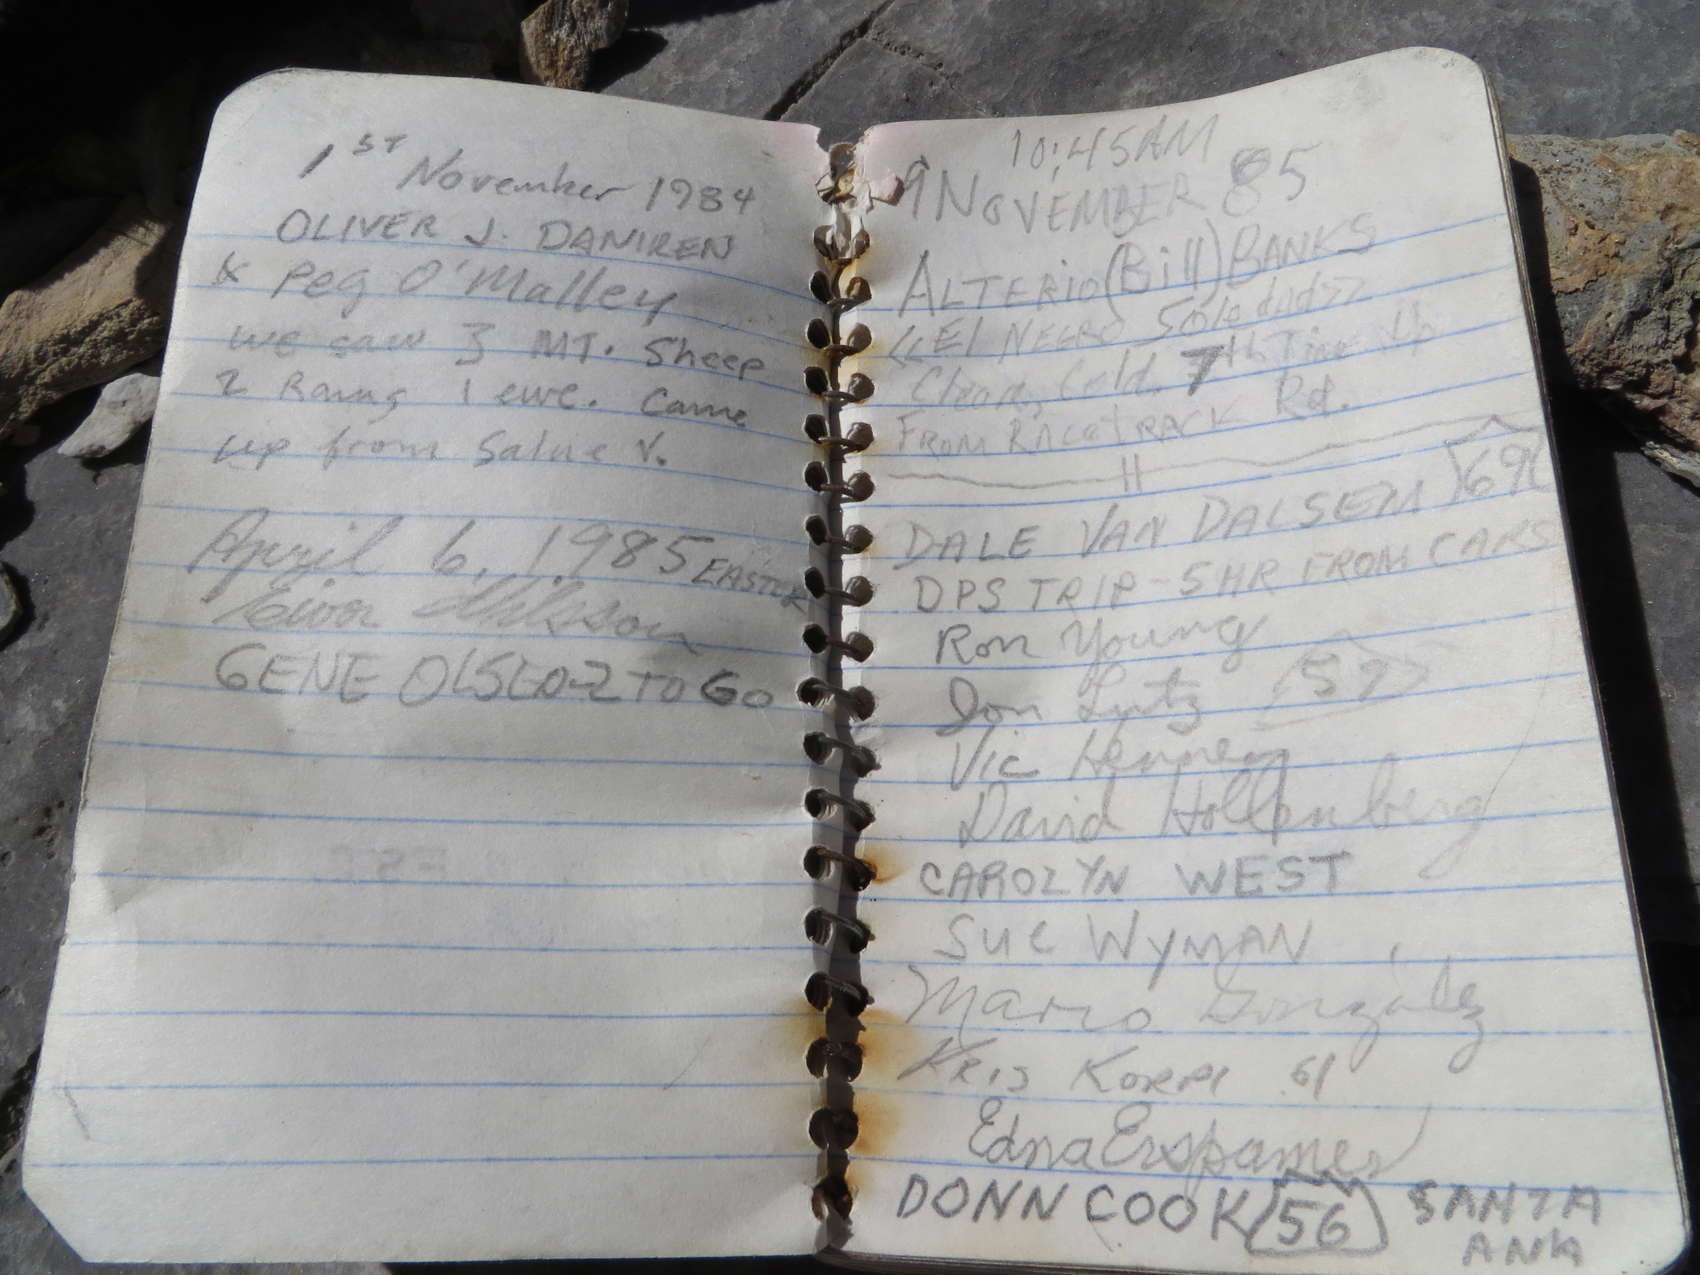 1ST November 1984
OLIVER J. DANIREN
& Peg O'Malley
we saw 3 MT. Sheep
2 Rams 1 ewe. Came
up from Saline V.
April 6, 1985 EASTER
GENE OLSEN-2 TO GO
10:45AM
9 NOVEMBER 85
ALTERIO (Bill) BANKS
"EL NEGRO Soledad"
Clear, Cold. 7th Time Up
FROM RACETRACK Rd.
DALE VAN DALSEM 69
DPS TRIP - 5 HR FROM CARS
Ron Young
Jon Lutz 57
Vic Henney
David Hollenberg
CAROLYN WEST
SUE WYMAN
Mario González
KRIS KORPI 61
Edna Erspamer
DONN COOK 56 SANTA
ANA